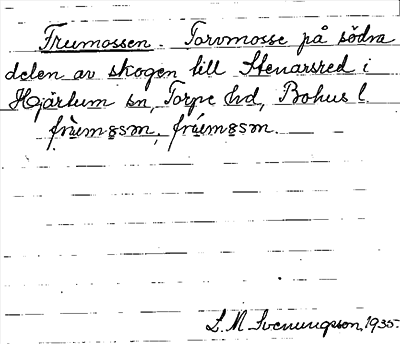 Frumossen. Torvmosse på södra
delen av skogen till Stenarsred i
Hjärtum sn, Torpe hd, Bohus l.
frùemǥsm, frúemǥsm.
L. M. Svenungsson, 1935.